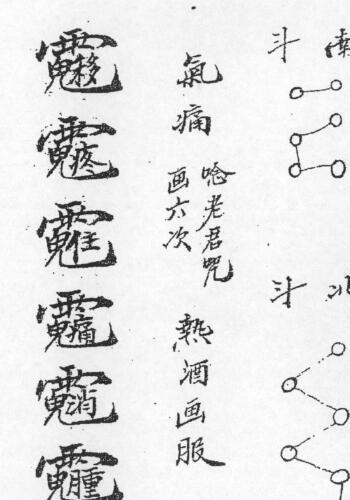 南斗
北斗
氣痛
唸老君咒
画六次
熱酒画服